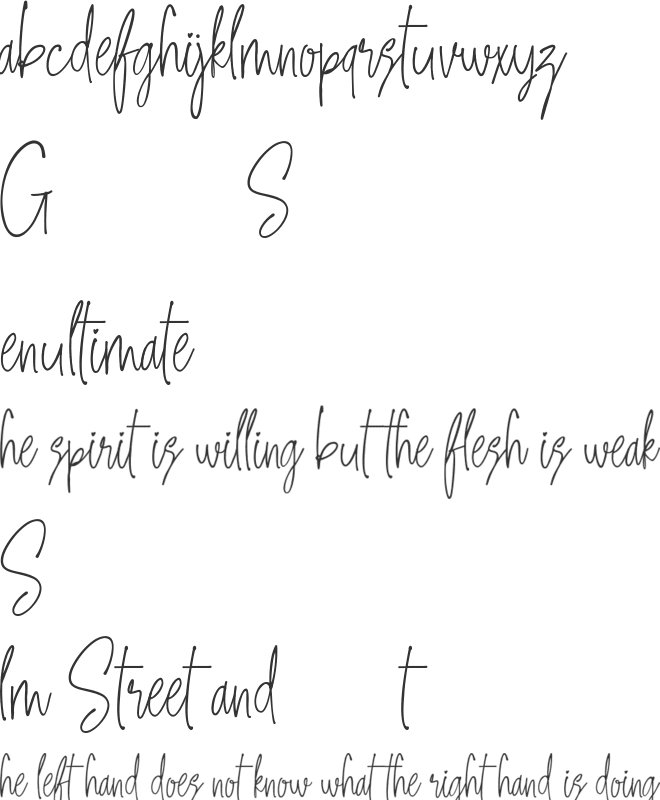 abcdefghijklmnopqrstuvwxyz
G S
enultimate
he spirit is willing but the flesh is weak
S
lm Street and t
he left hand does not know what the right hand is doing